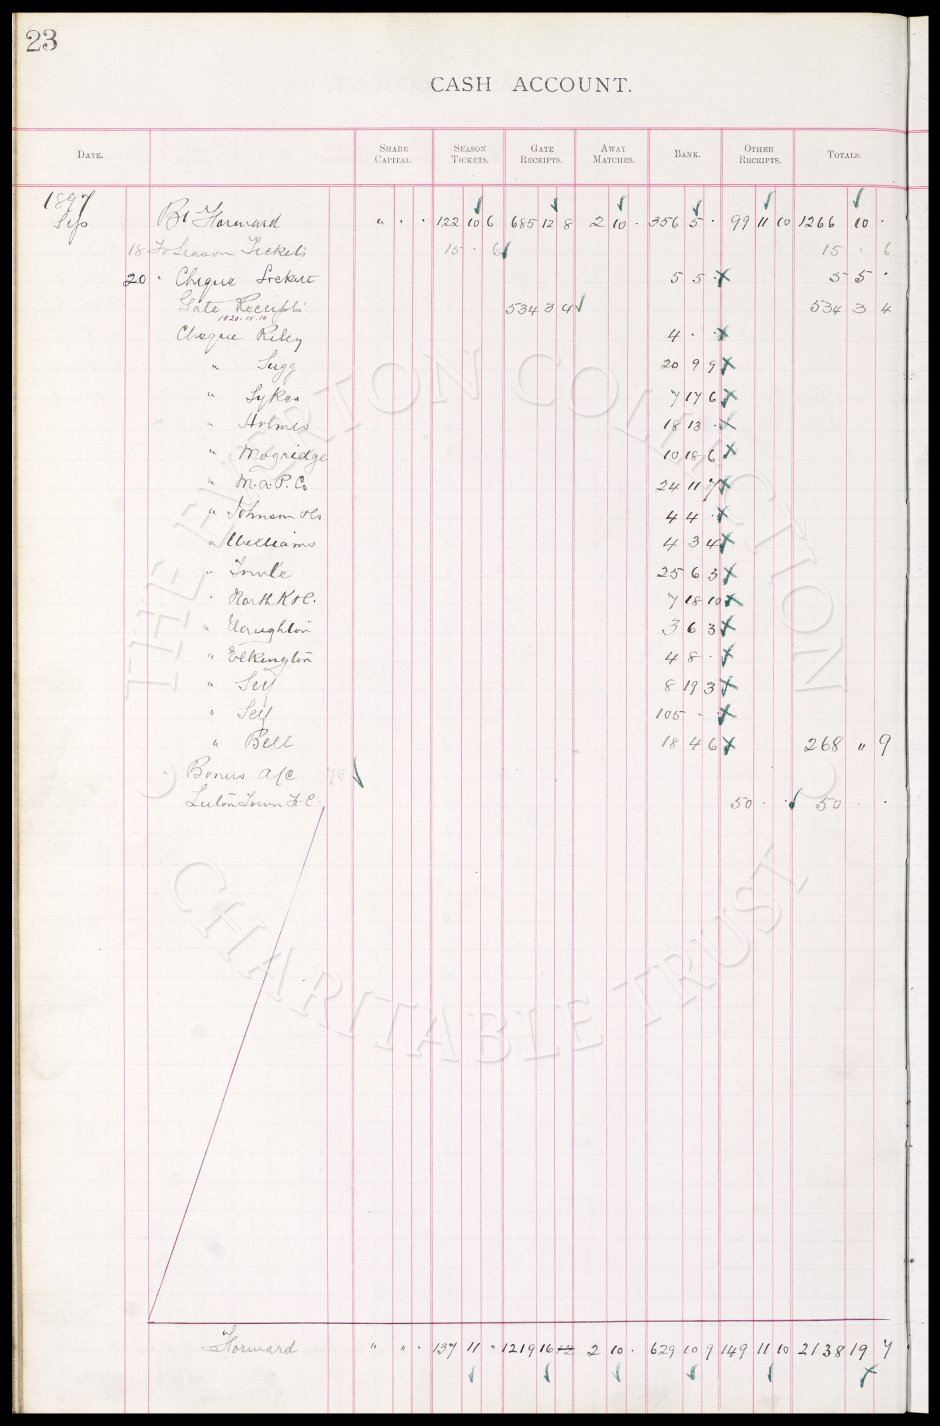 23
CASH ACCOUNT.
DATE. SHARE CAPITAL. SEASON TICKETS. GATE RECEIPTS. AWAY MATCHES. BANK. OTHER RECEIPTS. TOTALS.
1897
Sep Bt Forward " . . 122 10 6 685 12 8 2 10 . 356 5 . 99 11 10 1266 10 .
18 To Season Tickets 15 . 6 15 . 6
20 " Cheque Lockett 5 5 . 5 5 .
Gate Receipts 534 3 4 534 3 4
1820.18.10
Cheque Riley 4 . .
" Sugg 20 9 9
" Sykes 7 17 6
" Holmes 18 13 .
" Mogridge 10 18 6
" M.a.P. Co 24 11 7
" Johnson &Co 4 4 .
" Williams 4 3 4
" Towle 25 6 3
" North K&C. 7 18 10
" Houghton 3 6 3
" Elkington 4 8 .
" Self 8 19 3
" Self 105 - .
" Bell 18 4 6 268 " 9
" Bonus a/c 75
Luton Town F.C. 50 . . 50 . .
" Forward " " . 137 11 " 1219 16 2 10 . 629 10 9 149 11 10 2138 19 7
THE EVERTON COLLECTION
CHARITABLE TRUST